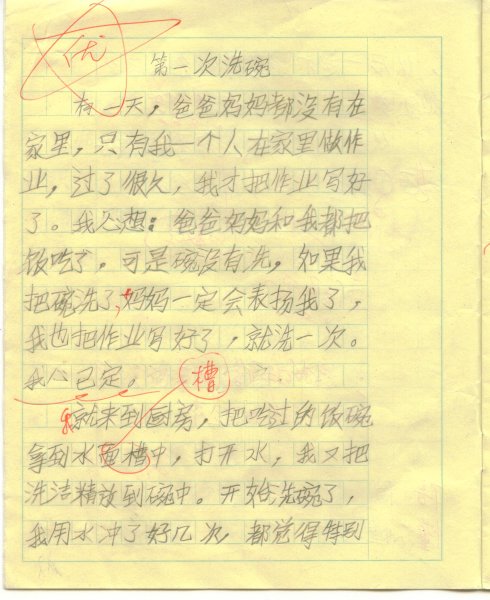 优
第一次洗碗
有一天，爸爸妈妈都没有在
家里，只有我一个人在家里做作
业，过了很久，我才把作业写好
了。我心想：爸爸妈妈和我都把
饭吃了，可是碗没有洗，如果我
把碗洗了，妈妈一定会表扬我了，
我也把作业写好了，就洗一次。
我心已定。
槽
我就来到厨房，把吃过的饭碗
拿到水槽中，打开水，我又把
洗洁精放到碗中。开始洗碗了，
我用水冲了好几次，都觉得特别